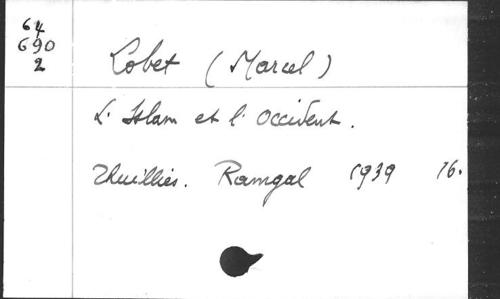 64
690
2
Lobet (Marcel)
L'Islam et l'Occident.
Thuillies. Ramgal 1939 16.